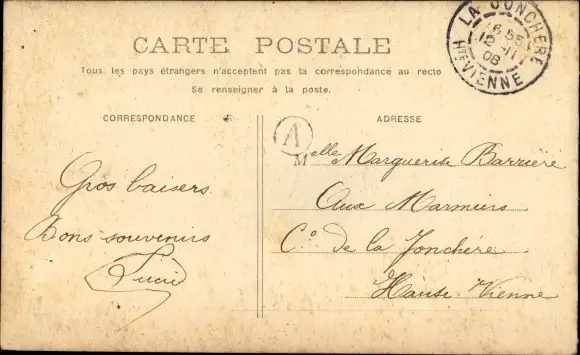 CARTE POSTALE
Tous les pays étrangers n'acceptent pas la correspondance au recto
Se renseigner à la poste.
LA JONCHERE
6 55
12 -11
08
HTE VIENNE
CORRESPONDANCE
ADRESSE
A
Gros baisers
Bons souvenirs
Lucie
Melle Marguerite Barrière
Aux Marmiers
Cº de la Jonchère
Haute Vienne